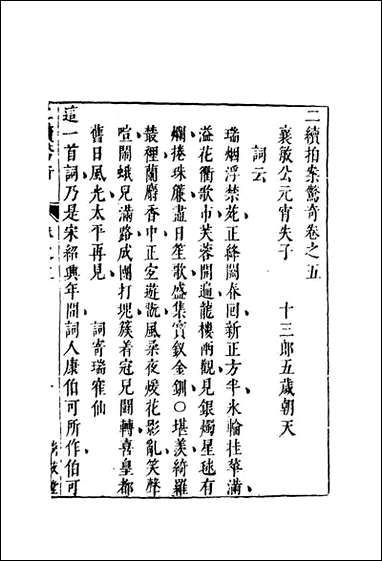 二續拍案驚奇卷之五
襄敏公元宵失子　十三郎五歲朝天
詞云
瑞烟浮禁苑正絳闕春回新正方半氷輪桂華滿
溢花衢歌市芙蓉開遍龍樓兩觀見銀燭星毬有
爛捲珠簾盡日笙歌盛集寶釵金釧〇堪羨綺羅
叢裡蘭麝香中正宜遊翫風柔夜煖花影亂笑聲
喧鬧蛾兒滿路成團打塊簇着冠兒鬬轉喜皇都
舊日風光太平再見　詞寄瑞寉仙
這一首詞乃是宋紹興年間詞人康伯可所作伯可